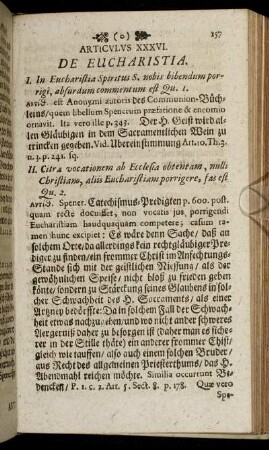 (o)
157
ARTICVLVS XXXVI.
DE EUCHARISTIA.
I. In Eucharistia Spiritus S. nobis bibendum por-
rigi, absurdum commentum est Qu. 1.
est Anonymi autoris des Communion-Büch-
leins/ quem libellum Spenerum præfatione & encomio
ornavit. Ita vero ille p. 345. Der H. Geist wird al-
len Gläubigen in dem Sacramentlichen Wein zu
trincken gegeben. Vid. Ubereinstimmung Art. 10. Th. 3.
n. 3. p. 241. sq.
II. Citra vocationem ab Ecclesia obtentam, nulli
Christiano, aliis Eucharistiam porrigere, fas est
Qu. 2.
Spener. Catechismus-Predigten p. 600. post-
quam recte docuisset, non vocatis jus, porrigendi
Eucharistiam haudquaquam competere; casum ta-
men hunc excipiet: Es wäre denn Sache/ daß an
solchem Orte/ da allerdings kein rechtgläubiger Pre-
diger zu finden/ ein frommer Christ im Anfechtungs-
Stande sich mit der geistlichen Niessung/ als der
gewöhnlichen Speise/ nicht bloß zu frieden geben
könte/ sondern zu Stärckung seines Glaubens in sol-
cher Schwachheit des H. Sacraments/ als einer
Artzney bedörffte: Da in solchem Fall der Schwach-
heit etwas nachzugeben/ und wo nicht ander schweres
Aergernuß daher zu besorgen ist (daher man es siche-
rer in der Stille thäte) ein anderer frommer Christ/
gleich wie tauffen/ also auch einem solchen Bruder/
aus Recht des allgemeinen Priesterthums/ das H.
Abendmahl reichen möchte. Similia occurrunt Be-
dencken/ P. 1. c. 2. Art. 5. Sect. 8. p. 178. Quæ vero
Spe-